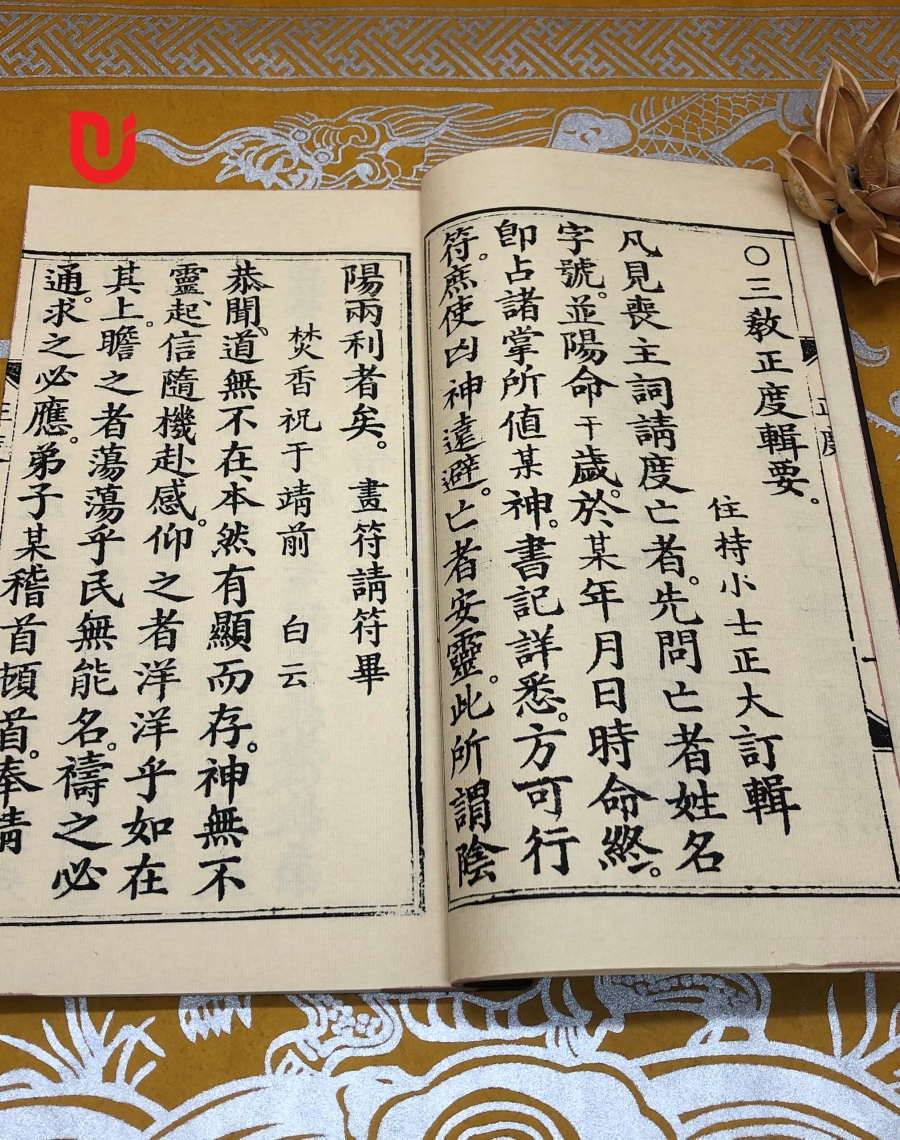 〇三教正度輯要。
住持小士正大訂輯
凡見喪主詞請度亡者。先問亡者姓名
字號。並陽命干歲。於某年月日時命終。
卽占諸掌所値某神。書記詳悉。方可行
符。庶使凶神遠避。亡者安靈。此所謂陰
陽兩利者矣。畫符請符畢
焚香祝于靖前 白云
恭聞、道無不在、本然有顯而存。神無不
靈、起信隨機赴感。仰之者洋洋乎如在
其上。瞻之者蕩蕩乎民無能名。禱之必
通。求之必應。弟子某稽首頓首。奉請
正度